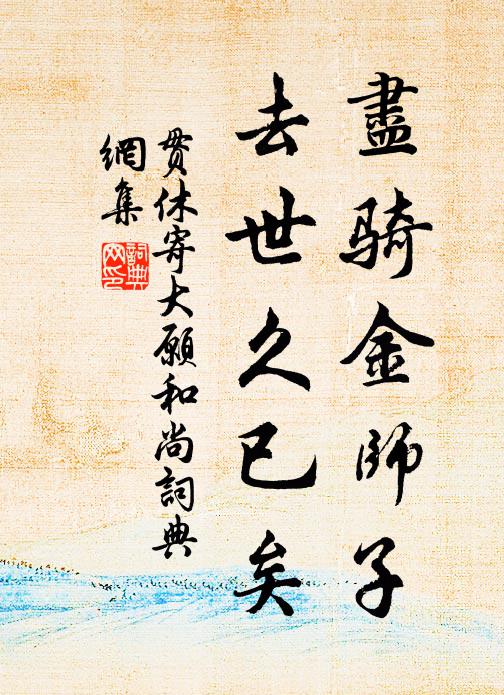 盡騎金師子
去世久已矣
貫休寄大願和尚詞典
網集
詞典
网印